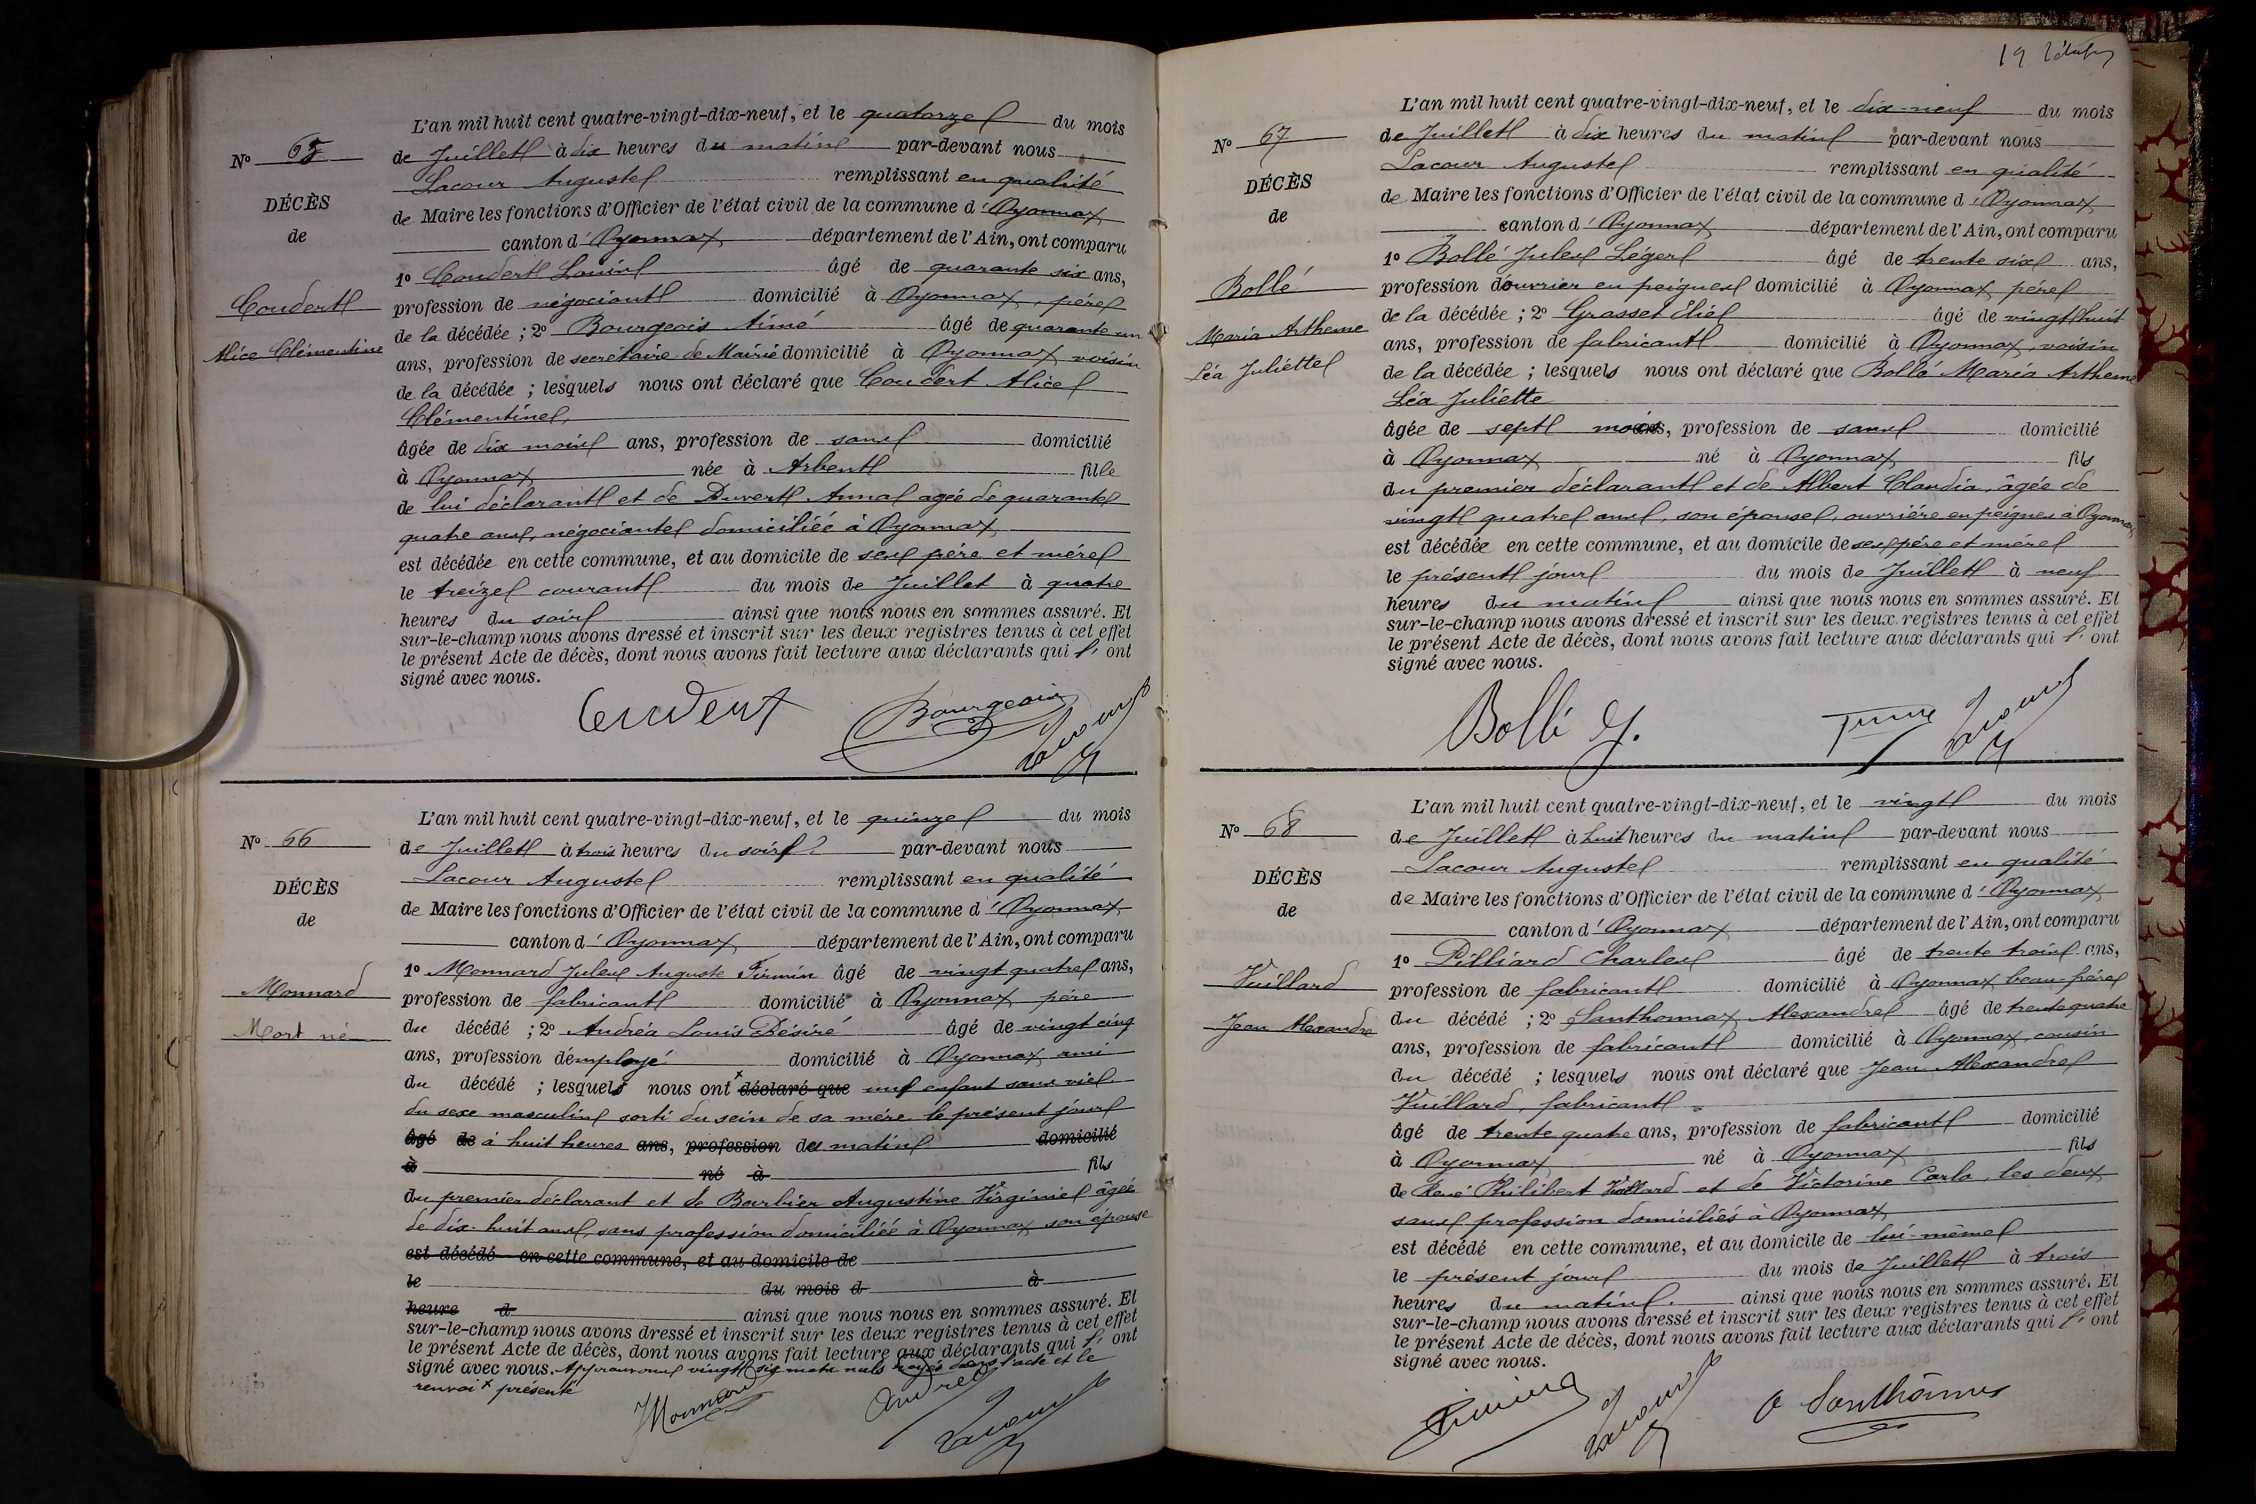 L'an mil huit cent quatre-vingt-dix-neuf, et le quatorze du mois
N° 65
de Juillet à dix heures du matin par-devant nous
Lacour Auguste remplissant en qualité
DÉCÈS
de Maire les fonctions d'Officier de l'état civil de la commune d'Oyonnax
de
canton d'Oyonnax département de l'Ain, ont comparu
1° Coudert Louis âgé de quarante six ans,
Coudert
profession de négociant domicilié à Oyonnax, père
de la décédée ; 2° Bourgeois Aimé âgé de quarante un
Alice Clémentine
ans, profession de secrétaire de Mairie domicilié à Oyonnax voisin
de la décédée ; lesquels nous ont déclaré que Coudert Alice
Clémentine,
âgée de dix mois ans, profession de sans domicilié
à Oyonnax née à Arbent fille
de lui déclarant et de Duvert Anna agée de quarante
quatre ans, négociante domiciliée à Oyonnax
est décédée en cette commune, et au domicile de ses père et mère
le treize courant du mois de Juillet à quatre
heures du soir ainsi que nous nous en sommes assuré. Et
sur-le-champ nous avons dressé et inscrit sur les deux registres tenus à cet effet
le présent Acte de décès, dont nous avons fait lecture aux déclarants qui l' ont
signé avec nous.
Coudert Bourgeois Lacour
L'an mil huit cent quatre-vingt-dix-neuf, et le quinze du mois
N° 66
de Juillet à trois heures du soir par-devant nous
Lacour Auguste remplissant en qualité
DÉCÈS
de Maire les fonctions d'Officier de l'état civil de la commune d'Oyonnax
de
canton d'Oyonnax département de l'Ain, ont comparu
1° Monnard Jules Auguste Firmin âgé de vingt quatre ans,
Monnard
profession de fabricant domicilié à Oyonnax père
du décédé ; 2° Andréa Louis Désiré âgé de vingt cinq
Mort né
ans, profession d'employé domicilié à Oyonnax ami
du décédé ; lesquels nous ont x déclaré que un enfant sans vie
du sexe masculin sorti du sein de sa mère le présent jour
âgé de à huit heures ans, profession de du matin domicilié
à né à fils
du premier déclarant et de Barbier Augustine Virginie âgée
de dix-huit ans, sans profession domiciliée à Oyonnax son épouse
est décédé en cette commune, et au domicile de
le du mois d à
heure d ainsi que nous nous en sommes assuré. Et
sur-le-champ nous avons dressé et inscrit sur les deux registres tenus à cet effet
le présent Acte de décès, dont nous avons fait lecture aux déclarants qui l' ont
signé avec nous. Approuvons vingt six mots nuls rayés dans l'acte et le
renvoi x présenté
Monnard Andréa Lacour
19
L'an mil huit cent quatre-vingt-dix-neuf, et le dix-neuf du mois
N° 67
de Juillet à dix heures du matin par-devant nous
Lacour Auguste remplissant en qualité
DÉCÈS
de Maire les fonctions d'Officier de l'état civil de la commune d'Oyonnax
de
canton d'Oyonnax département de l'Ain, ont comparu
1° Bollé Jules Léger âgé de trente six ans,
Bollé
profession d'ouvrier en peignes domicilié à Oyonnax père
de la décédée ; 2° Grasset Élie âgé de vingt huit
Maria Artheme
ans, profession de fabricant domicilié à Oyonnax, voisin
Léa Juliette
de la décédée ; lesquels nous ont déclaré que Bollé Maria Artheme
Léa Juliette
âgée de sept mois, profession de sans domicilié
à Oyonnax né à Oyonnax fils
du premier déclarant et de Albert Claudia, âgée de
vingt quatre ans, son épouse, ouvrière en peignes à Oyonnax
est décédée en cette commune, et au domicile de ses père et mère
le présent jour du mois de Juillet à neuf
heures du matin ainsi que nous nous en sommes assuré. Et
sur-le-champ nous avons dressé et inscrit sur les deux registres tenus à cet effet
le présent Acte de décès, dont nous avons fait lecture aux déclarants qui l' ont
signé avec nous.
Bollé J. Lacour
L'an mil huit cent quatre-vingt-dix-neuf, et le vingt du mois
N° 68
de Juillet à huit heures du matin par-devant nous
Lacour Auguste remplissant en qualité
DÉCÈS
de Maire les fonctions d'Officier de l'état civil de la commune d'Oyonnax
de
canton d'Oyonnax département de l'Ain, ont comparu
1° Pilliard Charles âgé de trente trois ans,
Vuillard
profession de fabricant domicilié à Oyonnax beau-frère
Jean Alexandre
du décédé ; 2° Santhonnax Alexandre âgé de trente quatre
ans, profession de fabricant domicilié à Oyonnax, cousin
du décédé ; lesquels nous ont déclaré que Jean Alexandre
Vuillard, fabricant
âgé de trente quatre ans, profession de fabricant domicilié
à Oyonnax né à Oyonnax fils
de René Philibert Vuillard et de Victorine Carlo, les deux
sans profession domiciliés à Oyonnax
est décédé en cette commune, et au domicile de lui-même
le présent jour du mois de Juillet à trois
heures du matin. ainsi que nous nous en sommes assuré. Et
sur-le-champ nous avons dressé et inscrit sur les deux registres tenus à cet effet
le présent Acte de décès, dont nous avons fait lecture aux déclarants qui l' ont
signé avec nous.
Lacour